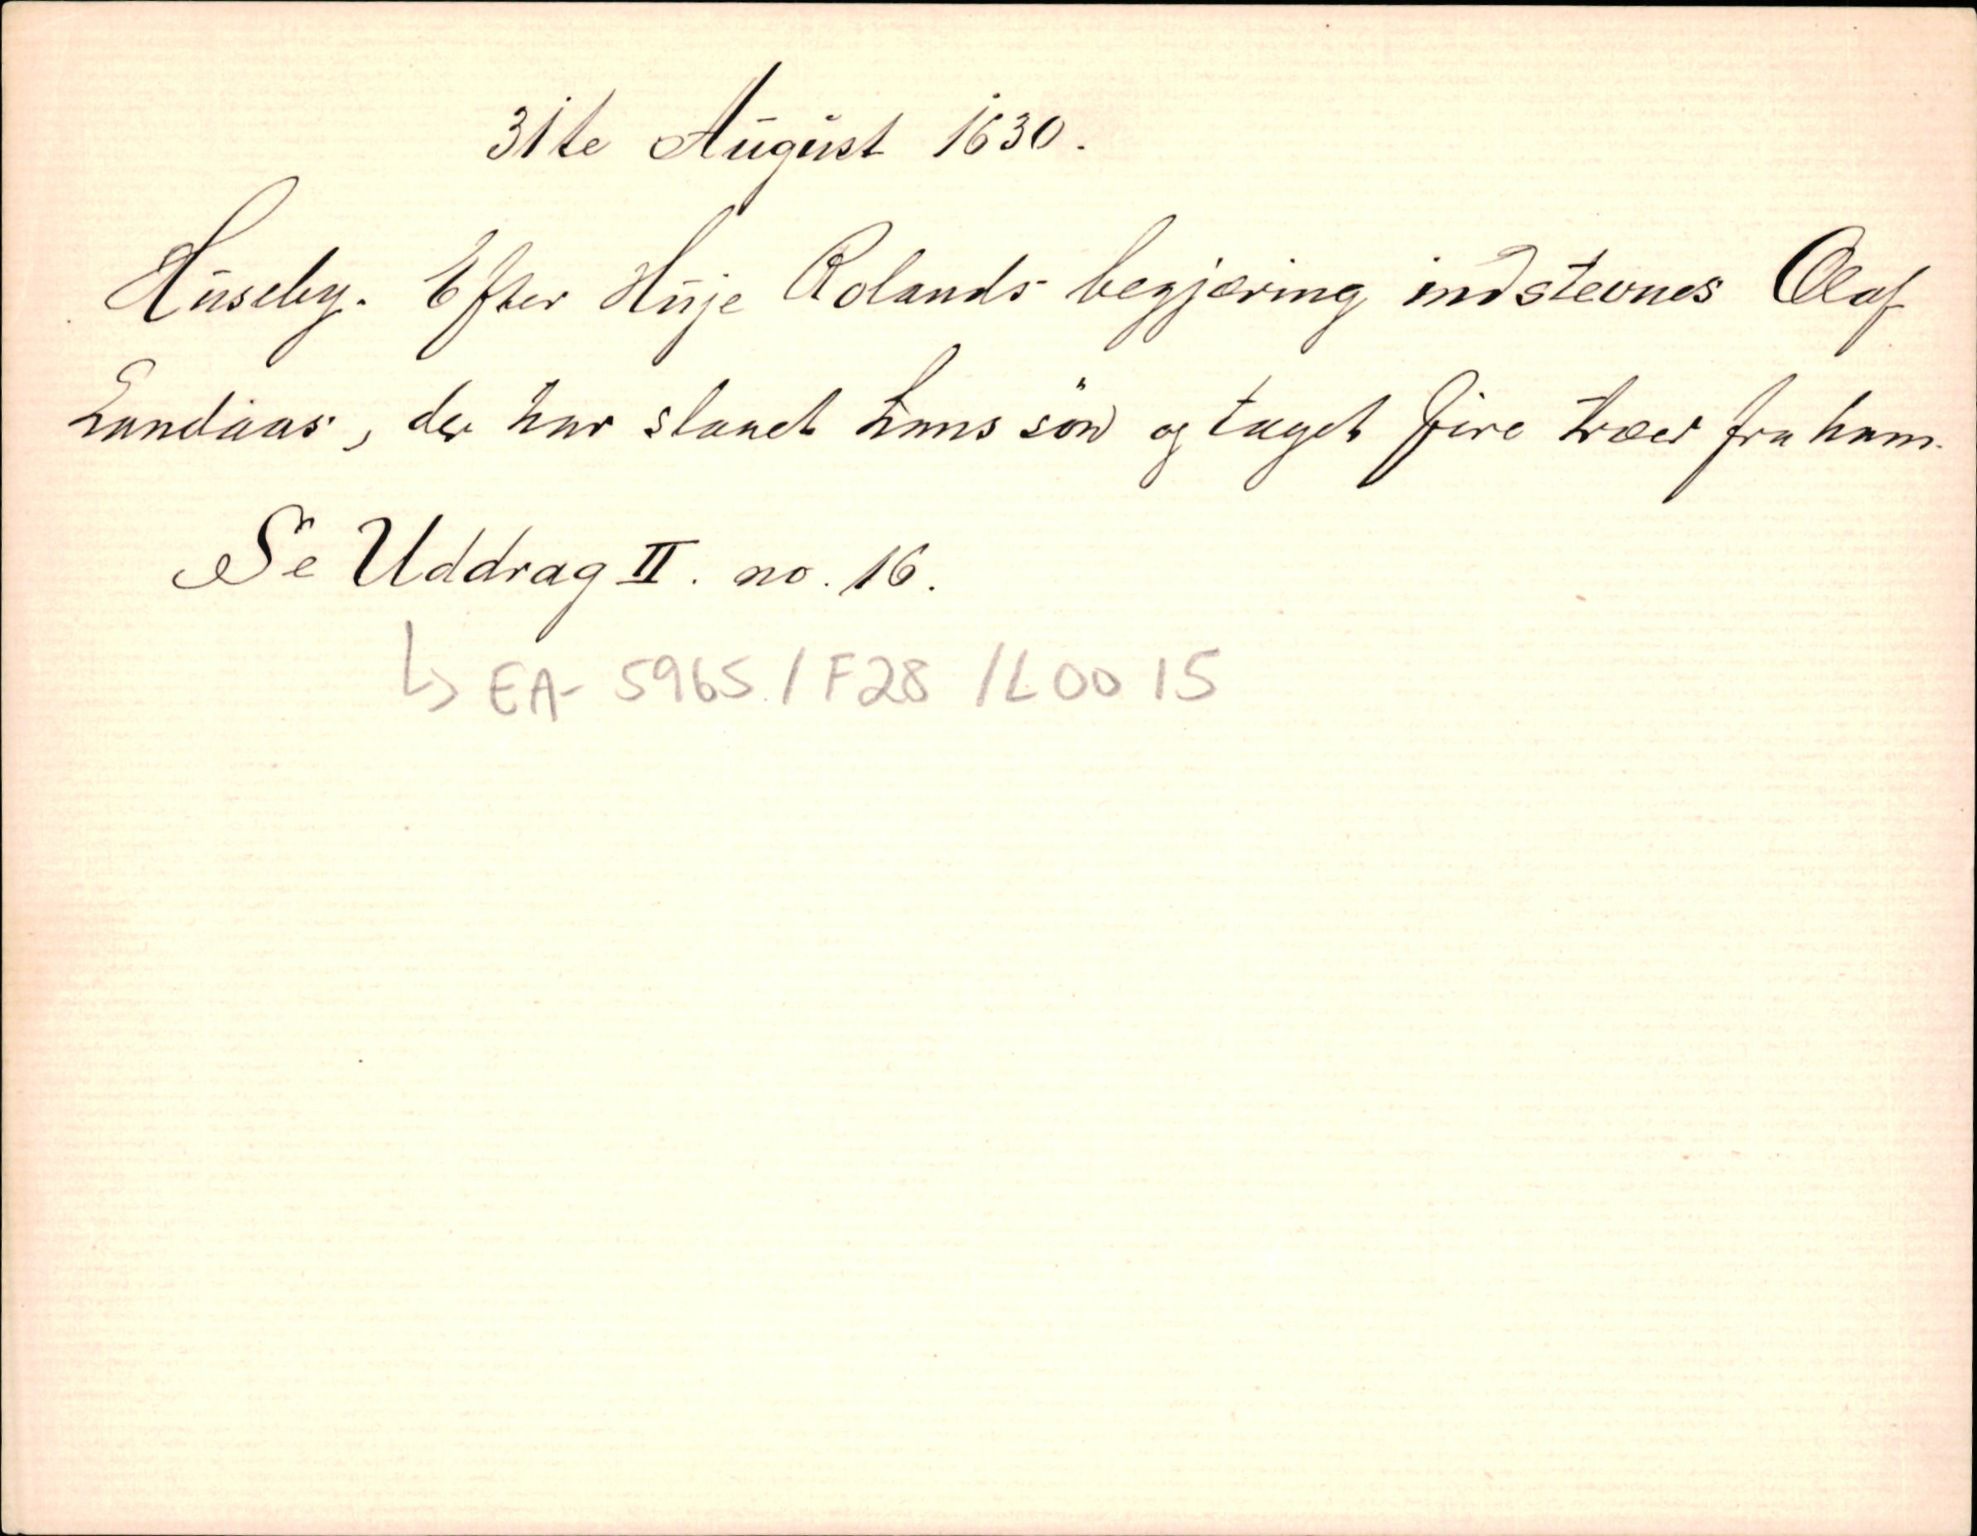 31te August 1630.
Huseby. Efter Huje Rolands begjæring indstevnes Olaf
Landaas, der har slaaet hans søn og taget fire træer fra ham.
Se Uddrag II. no. 16.
↳ EA-5965/F28/L0015